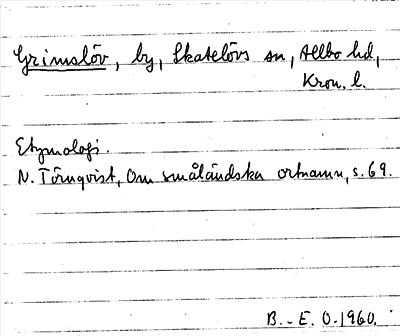 Grimslöv, by, Skatelövs sn, Allbo hd,
Kron. l.
Etymologi.
N. Törnqvist, Om småländska ortnamn, s. 69.
B.-E. O. 1960.